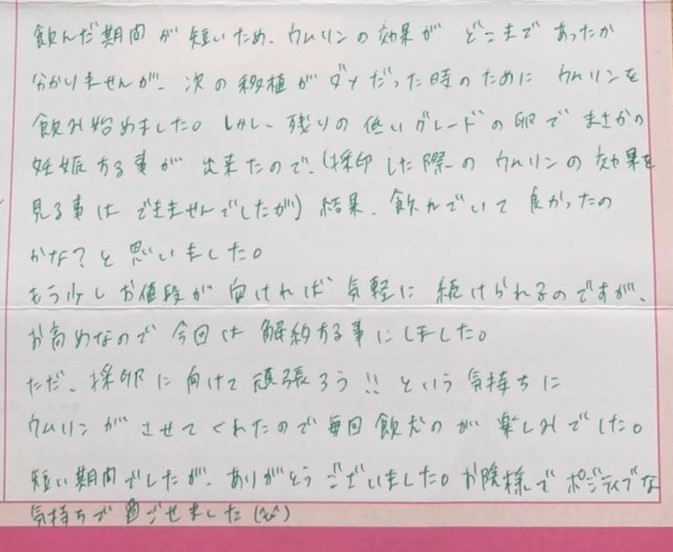 飲んだ期間が短いため、ウムリンの効果がどこまであったか
分かりませんが、次の移植がダメだった時のためにウムリンを
飲み始めました。しかし、残りの低いグレードの卵でまさかの
妊娠する事が出来たので、(採卵した際のウムリンの効果を
見る事はできませんでしたが)結果、飲んでいて良かったの
かな?と思いました。
もう少しお値段が安ければ気軽に続けられるのですが、
お高めなので今回は解約する事にしました。
ただ、採卵に向けて頑張ろう!!という気持ちに
ウムリンがさせてくれたので毎回飲むのが楽しみでした。
短い期間でしたが、ありがとうございました。お陰様でポジティブな
気持ちで過ごせました(^^)